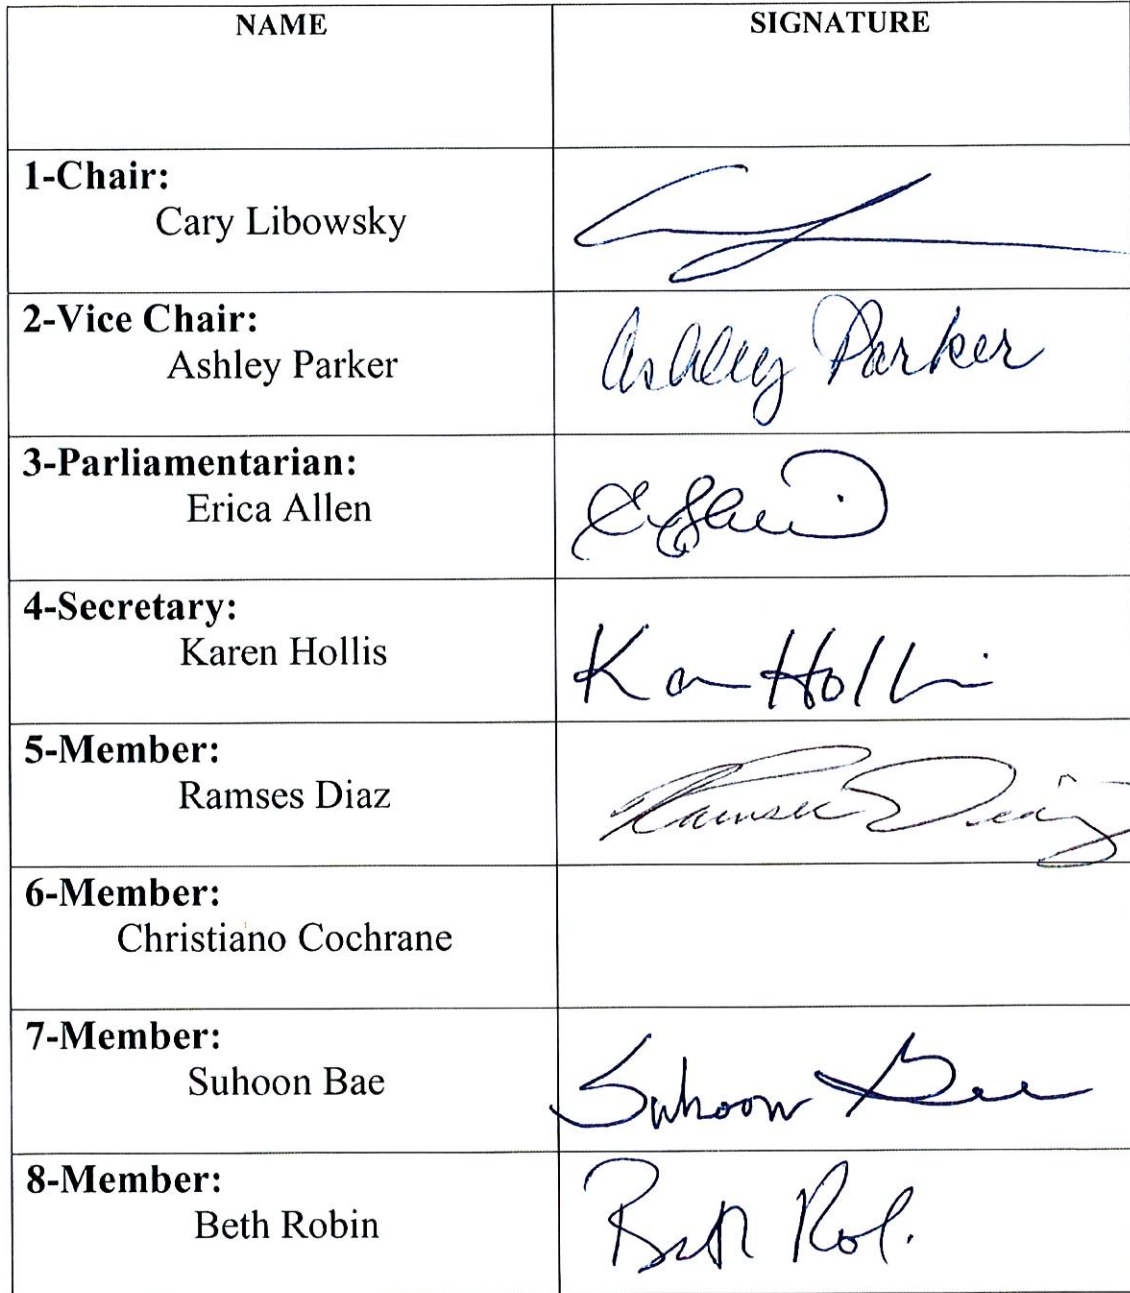 NAME SIGNATURE
1-Chair:
Cary Libowsky
2-Vice Chair:
Ashley Parker Ashley Parker
3-Parliamentarian:
Erica Allen
4-Secretary:
Karen Hollis Hollis
5-Member:
Ramses Diaz Ramses Diaz
6-Member:
Christiano Cochrane
7-Member:
Suhoon Bae Suhoon Bae
8-Member:
Beth Robin Beth